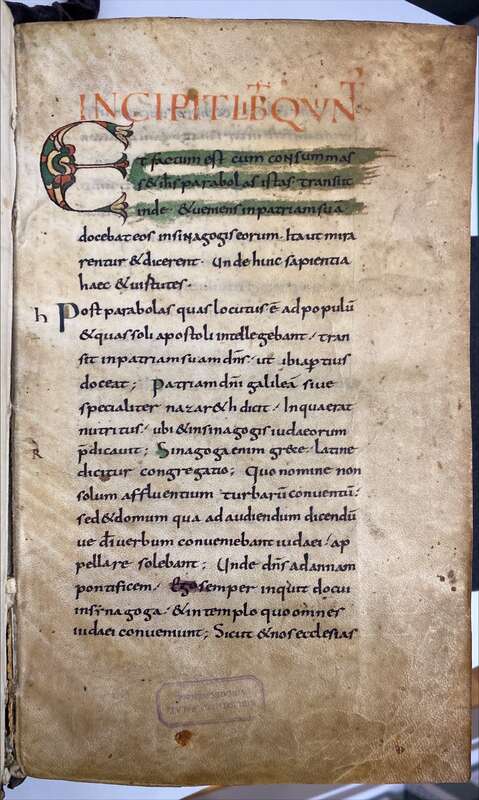 INCIPIT LIB QVINT
Et factum est cum consummas
s& ihs parabolas istas transiit
inde & veniens in patriam sua
docebat eos in sinagogis eorum. Ita ut mira
rentur & dicerent. Unde huic sapientia
haec & virtutes.
h Post parabolas quas locutus ē ad populū
& quas soli apostoli intellegebant / tran
sit in patriam suam dn̄s / ut ibi aptius
doceat; Patriam dn̄i galileā sive
specialiter nazar&h dicit. In qua erat
nutritus / ubi & in sinagogis iudaeorum
R p̄dicavit; Sinagoga enim grece / latine
dicitur congregatio; Quo nomine non
solum affluentium turbarū conventū /
sed & domum qua ad audiendum dicendū
ve dī verbum conveniebant iudaei / ap
pellare solebant; Unde dn̄s ad annam
pontificem / Ego semper inquit docui
in synagoga / & in templo quo omnes
iudaei conveniunt; Sicut & nos ecclesias